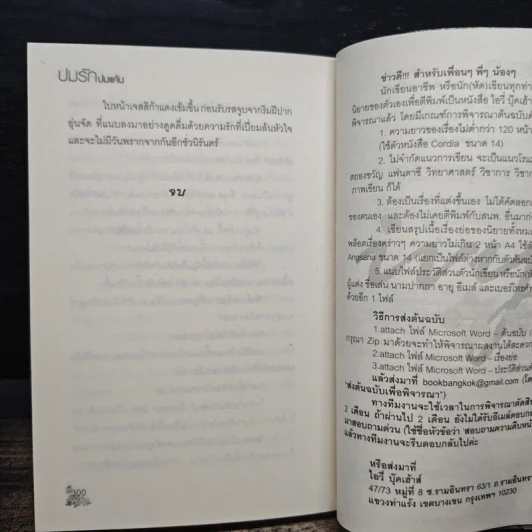 ปมรักปมแค้น
ใบหน้าเจสสิก้าแดงเข้มขึ้น ก่อนรับรสจูบจากริมฝีปาก
อุ่นจัด ที่แนบลงมาอย่างดูดดื่มด้วยความรักที่เปี่ยมล้นหัวใจ
และจะไม่มีวันพรากจากกันอีกชั่วนิรันดร์
จบ
300
ข่าวดี!!! สำหรับเพื่อนๆ พี่ๆ น้องๆ
นักเขียนอาชีพ หรือนัก(หัด)เขียนทุกท่า
นิยายของตัวเองเพื่อตีพิมพ์เป็นหนังสือ ไอวี่ บุ๊คเฮ้า
พิจารณาแล้ว โดยมีเกณฑ์การพิจารณาต้นฉบับดั
1. ความยาวของเรื่องไม่ต่ำกว่า 120 หน้า
(ใช้ตัวหนังสือ Cordia ขนาด 14)
2. ไม่จำกัดแนวการเขียน จะเป็นแนวโรแม
สยองขวัญ แฟนตาซี วิทยาศาสตร์ วิชาการ วิชาก
ภาพเขียน ก็ได้
3. ต้องเป็นเรื่องที่แต่งขึ้นเอง ไม่ได้คัดลอก
ของตนเอง และต้องไม่เคยตีพิมพ์กับสนพ. อื่นมาก่
4. เขียนสรุปเนื้อเรื่องย่อของนิยายทั้งหม
พล็อตเรื่องคร่าวๆ ความยาวไม่เกิน 2 หน้า A4 ใช้ตั
Angsana ขนาด 14 (แยกเป็นไฟล์ต่างหากกับตัวต้นฉบั
5. แนบไฟล์ประวัติส่วนตัวนักเขียนหรือนัก(หั
ผู้แต่ง ชื่อเล่น นามปากกา อายุ อีเมล์ และเบอร์โทรศั
ด้วยอีก 1 ไฟล์
วิธีการส่งต้นฉบับ
1.attach ไฟล์ Microsoft Word – ต้นฉบับ (
กรุณา Zip มาด้วยจะทำให้พิจารณาผลงานได้สะดวก
2.attach ไฟล์ Microsoft Word – เรื่องย่อ
3.attach ไฟล์ Microsoft Word – ประวัติส่วนตั
แล้วส่งมาที่ bookbangkok@gmail.com (โด
"ส่งต้นฉบับเพื่อพิจารณา")
ทางทีมงานจะใช้เวลาในการพิจารณาตัดสิน
2 เดือน ถ้าผ่านไป 2 เดือน ยังไม่ได้รับอีเมล์ตอบกล
มาสอบถามด่วน (ใช้ชื่อหัวข้อว่า "สอบถามความคืบหน้
แล้วทางทีมงานจะรีบตอบกลับไปค่ะ
หรือส่งมาที่
ไอวี่ บุ๊คเฮ้าส์
47/73 หมู่ที่ 8 ซ.รามอินทรา 63/1 ถ.รามอินทร
แขวงท่าแร้ง เขตบางเขน กรุงเทพฯ 10230